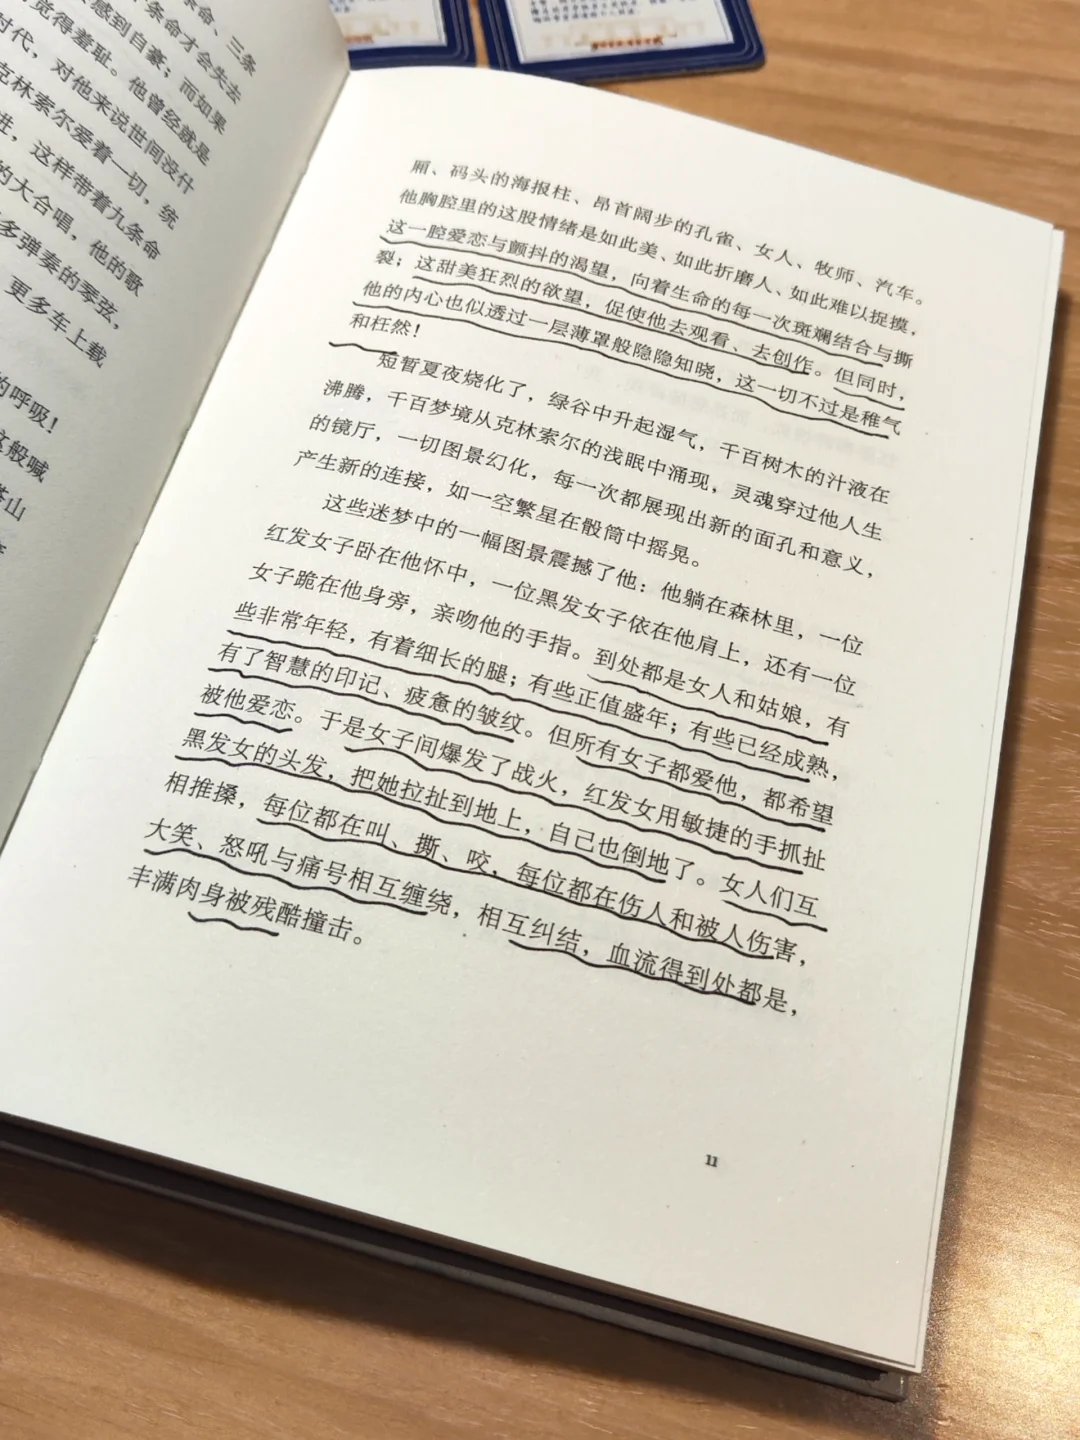 命、三条
条命才会失去
感到自豪；而如果
觉得羞耻。他曾经就是
时代，对他来说世间没什
克林索尔爱着一切，统
进，这样带着九条命
的大合唱，他的歌
多弹奏的琴弦，
更多车上载
的呼吸！
这般喊
塔山
厢、码头的海报柱、昂首阔步的孔雀、女人、牧师、汽车。
他胸腔里的这股情绪是如此美、如此折磨人、如此难以捉摸，
这一腔爱恋与颤抖的渴望，向着生命的每一次斑斓结合与撕
裂；这甜美狂烈的欲望，促使他去观看、去创作。但同时，
他的内心也似透过一层薄罩般隐隐知晓，这一切不过是稚气
和枉然！
短暂夏夜烧化了，绿谷中升起湿气，千百树木的汁液在
沸腾，千百梦境从克林索尔的浅眠中涌现，灵魂穿过他人生
的镜厅，一切图景幻化，每一次都展现出新的面孔和意义，
产生新的连接，如一空繁星在骰筒中摇晃。
这些迷梦中的一幅图景震撼了他：他躺在森林里，一位
红发女子卧在他怀中，一位黑发女子依在他肩上，还有一位
女子跪在他身旁，亲吻他的手指。到处都是女人和姑娘，有
些非常年轻，有着细长的腿；有些正值盛年；有些已经成熟，
有了智慧的印记、疲惫的皱纹。但所有女子都爱他，都希望
被他爱恋。于是女子间爆发了战火，红发女用敏捷的手抓扯
黑发女的头发，把她拉扯到地上，自己也倒地了。女人们互
相推搡，每位都在叫、撕、咬，每位都在伤人和被人伤害，
大笑、怒吼与痛号相互缠绕，相互纠结，血流得到处都是，
丰满肉身被残酷撞击。
11